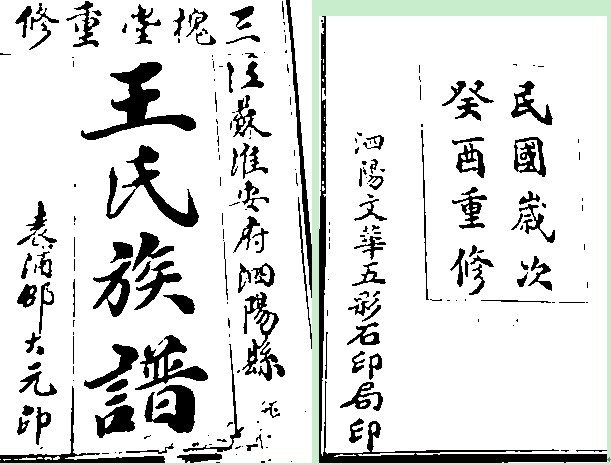 三槐堂重修
江蘇淮安府泗陽縣
王氏族譜
袁浦邵大元印
民國歲次
癸酉重修
泗陽文華五彩石印局印